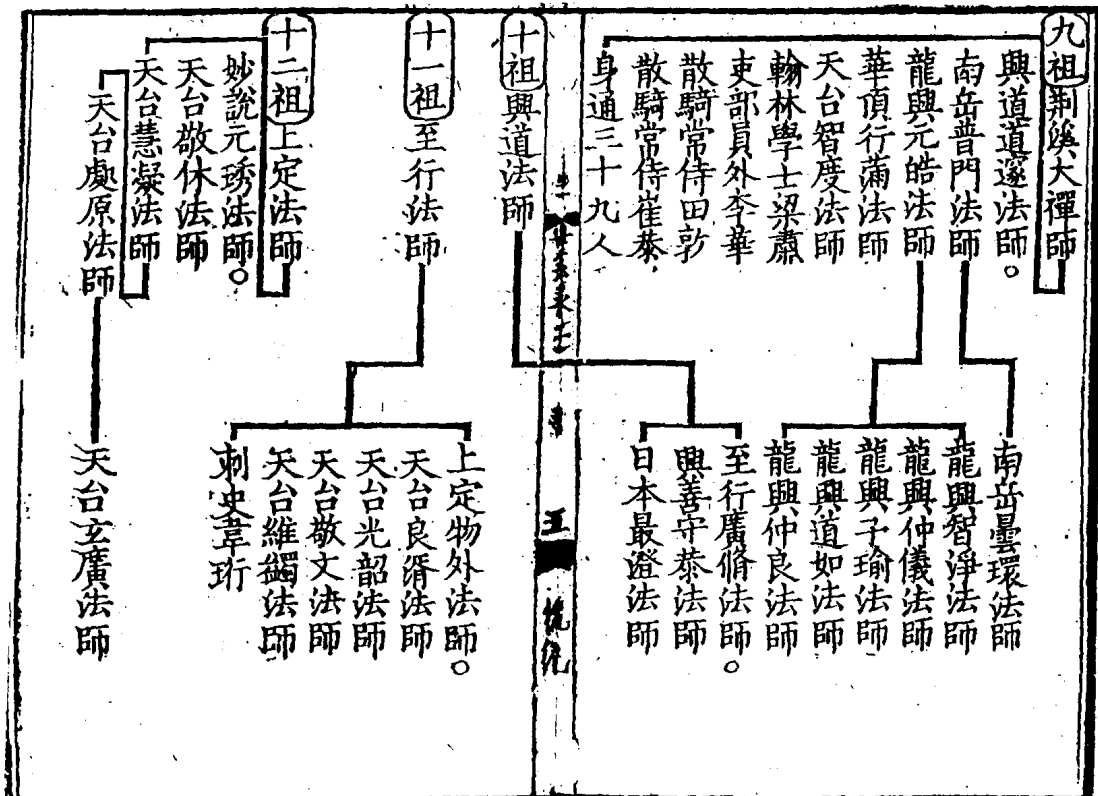 九祖荆溪大禪師
興道道邃法師○
南岳普門法師
龍興元皓法師
華頂行滿法師
天台智度法師
翰林學士梁肅
吏部員外李華
散騎常侍田敦
散騎常侍崔恭
身通三十九人
南岳曇環法師
龍興智淨法師
龍興仲儀法師
龍興子瑜法師
龍興道如法師
龍興仲良法師
十祖興道法師
至行廣脩法師○
興善守恭法師
日本最澄法師
十一祖至行法師
上定物外法師○
天台良湑法師
天台光韶法師
天台敬文法師
天台維蠲法師
刺史韋珩
十二祖上定法師
妙說元琇法師○
天台敬休法師
天台慧凝法師
天台處原法師
天台玄廣法師